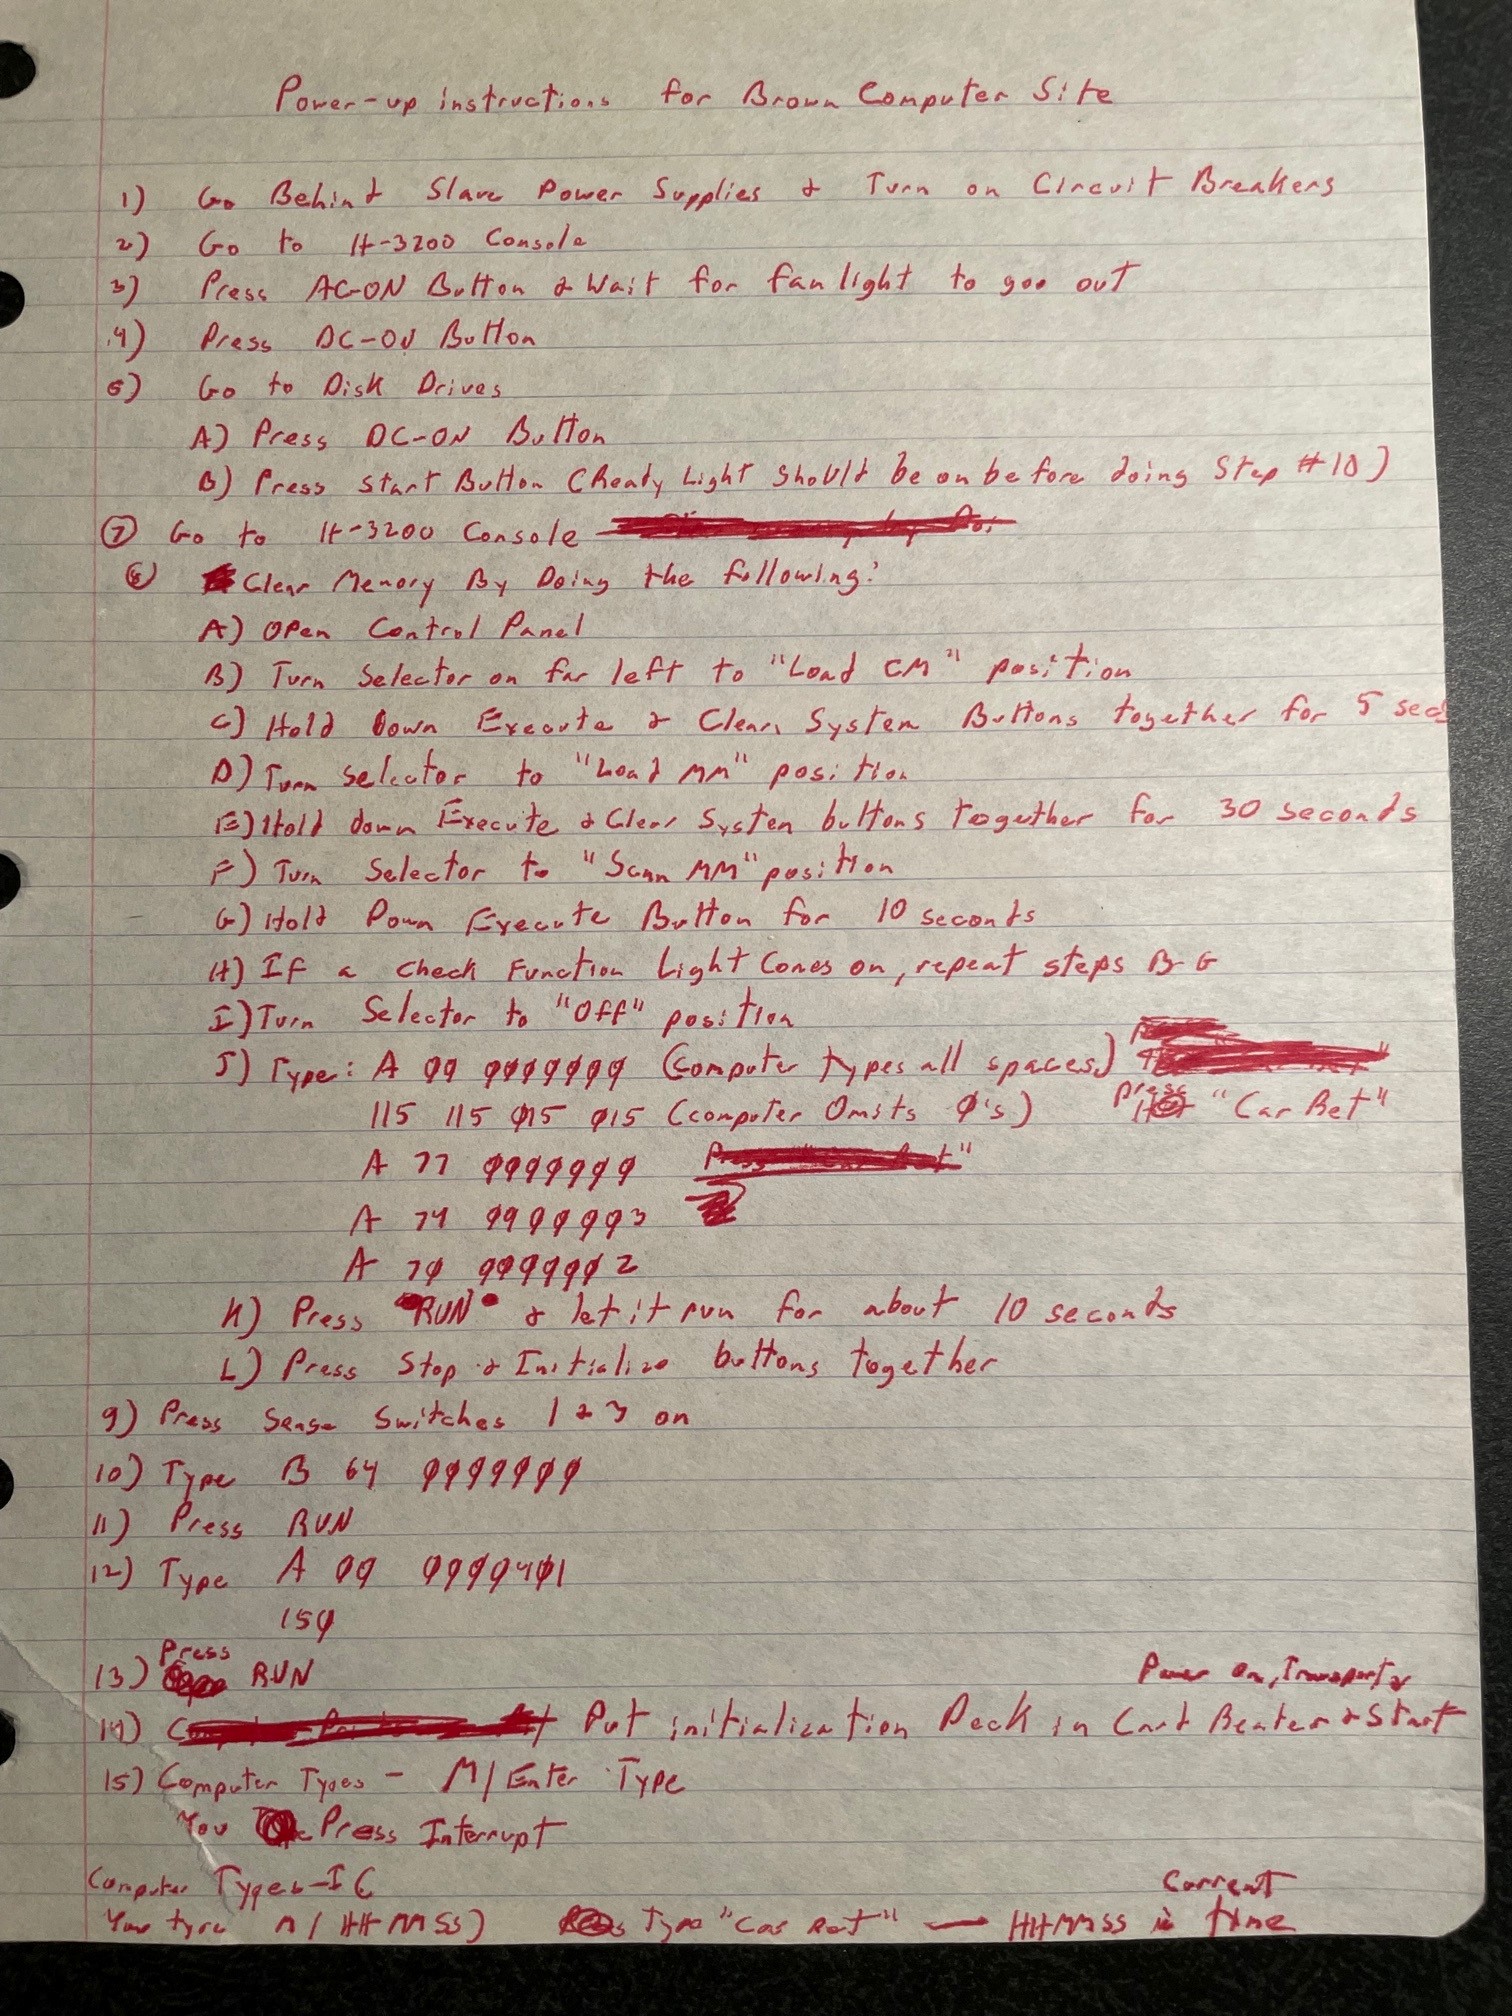 Power-up instructions for Brown Computer Site
1) Go Behind Slave Power Supplies & Turn on Circuit Breakers
2) Go to H-3200 Console
3) Press AC-ON Button & Wait for fan light to goo out
4) Press DC-ON Button
5) Go to Disk Drives
A) Press DC-ON Button
B) Press start Button (Ready Light Should be on before doing Step #10)
7 Go to H-3200 Console
8 Clear Memory By Doing the following:
A) Open Control Panel
B) Turn Selector on far left to "Load CM" position
C) Hold Down Execute & Clear System Buttons together for 5 secs
D) Turn selector to "Load MM" position
E) Hold down Execute & Clear System buttons together for 30 seconds
F) Turn Selector to "Scan MM" position
G) Hold Down Execute Button for 10 seconds
H) If a check Function Light Comes on, repeat steps B-G
I) Turn Selector to "Off" position
J) Type: A ØØ ØØØØØØØ (Computer types all spaces)
115 115 Ø15 Ø15 (computer Omits Ø's) Press "Car Ret"
A 77 ØØØØØØØ
A 74 ØØØØØØ3
A 7Ø ØØØØØØ2
K) Press "RUN" & let it run for about 10 seconds
L) Press Stop & Initialize buttons together
9) Press Sense Switches 1 & 3 on
10) Type B 64 ØØØØØØØ
11) Press RUN
12) Type A ØØ ØØØØ4Ø1
15Ø
13) Press RUN
Power On, Transport &
14) Put initialization Deck in Card Reader & Start
15) Computer Types - M/Enter Type
You Press Interrupt
Computer Types-IC
You type M/HHMMSS) Type "Car Ret" — HHMMSS is Current time